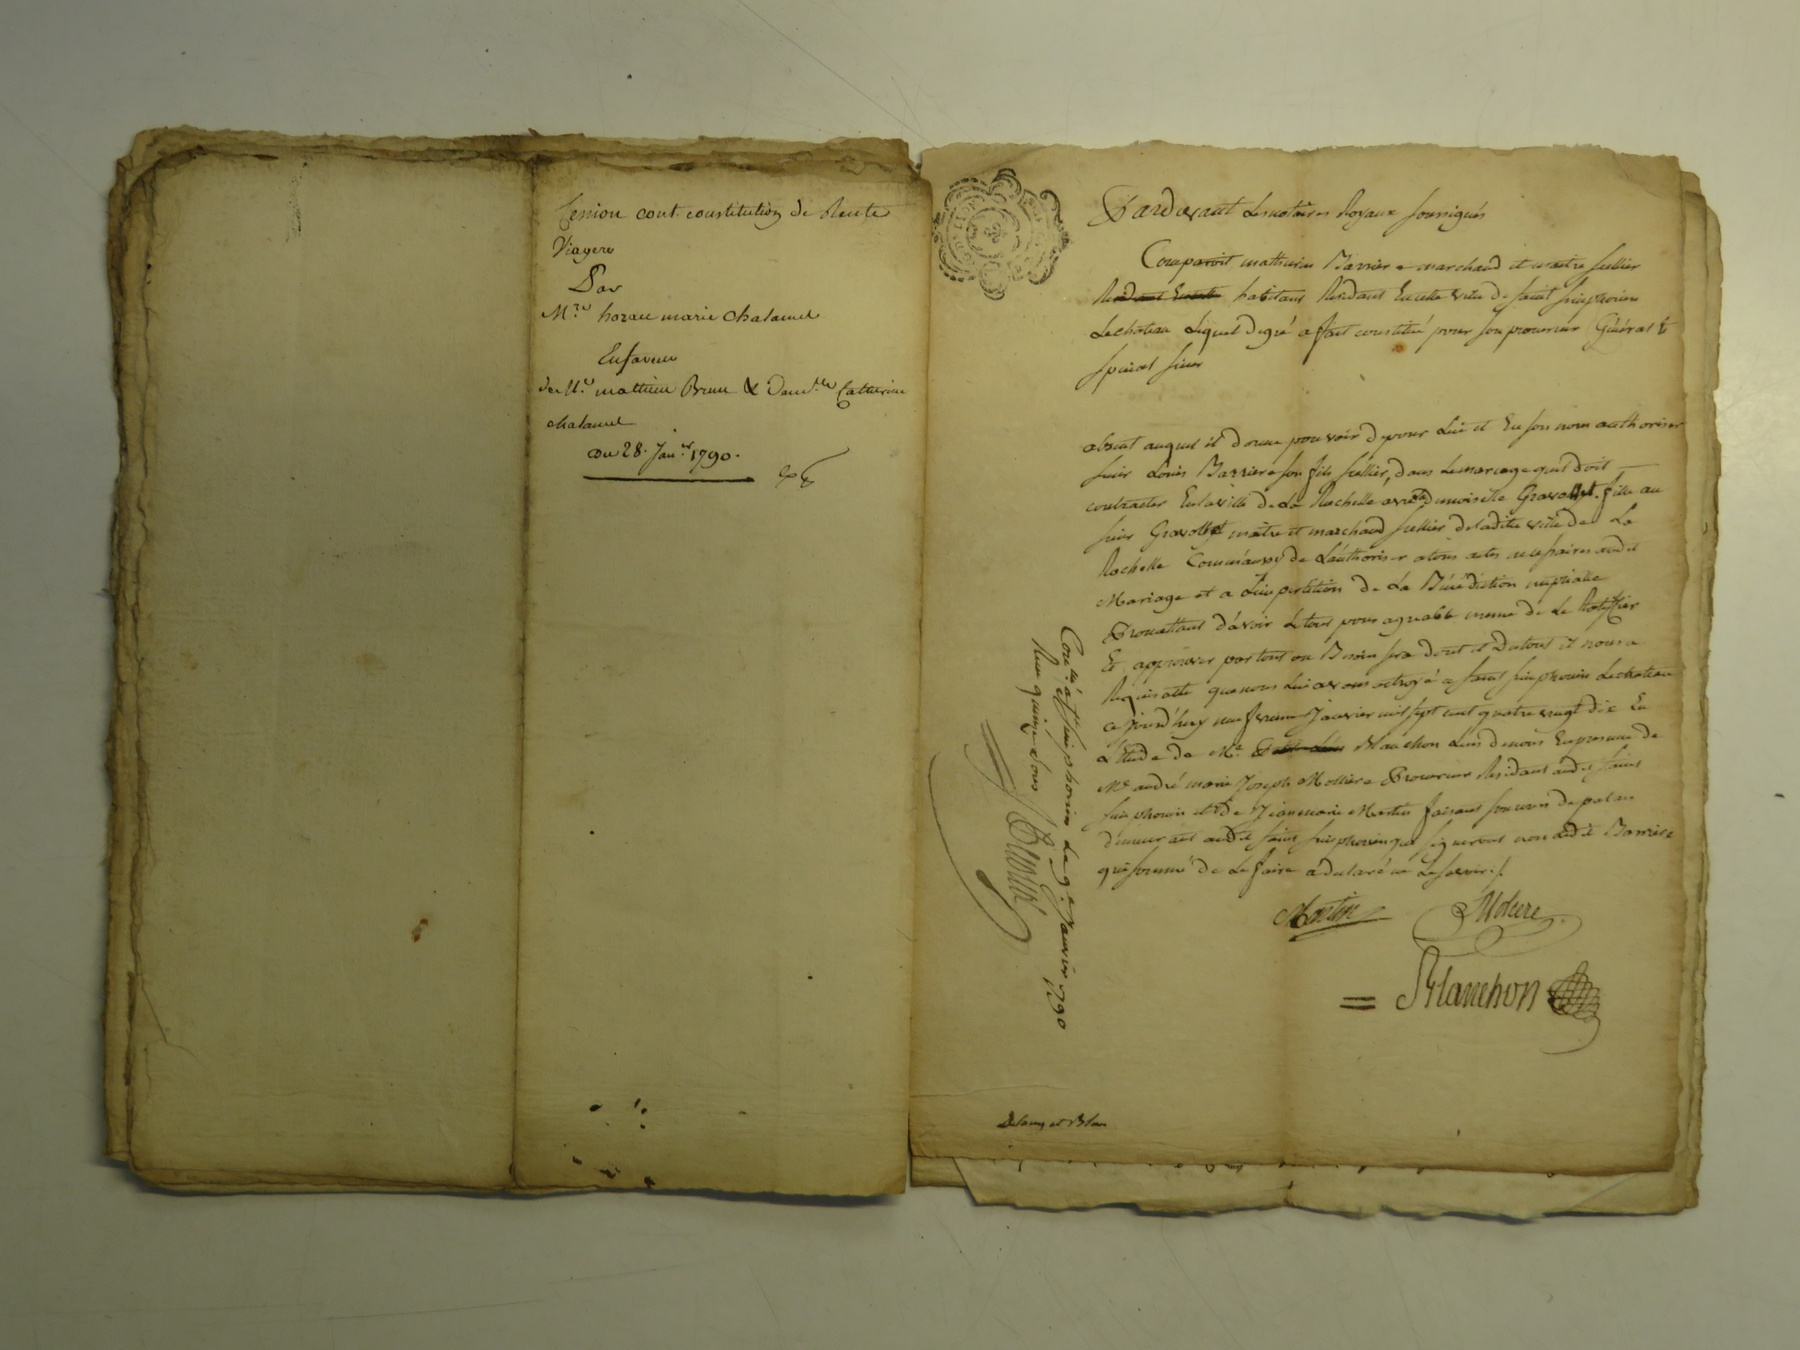 Cession cont constitution de Rente
Viagere
Par
Mre horace marie Chalamel
En faveur
de Mr mathieu Brun & Dam.lle Catherine
chalamel
du 28. Janer 1790.
Pardevant Les notaires Royaux soussignés
Comparoit mathurin Barriere marchand et maitre sellier
habitant Residant En cette ville de saint simphorien
Lechateau Lequel de gré a fait constitué pour son procureur Général &
special sieur
absent auquel il donne pouvoir de pour Lui et En son nom authoriser
sieur Louis Barriere son fils sellier, dans Le mariage quil doit
contracter En la ville de La Rochelle avec demoiselle fille au
sieur maitre et marchand sellier de ladite ville de La
Rochelle Comm'aussy de L'authoriser a tous actes necessaires audit
Mariage et a L'impertition de La Bénédiction nuptiale
Promettant d'avoir Le tout pour agreable meme de Le Ratiffier
Et approuver par tout ou Besoin sera dont et du tout il nous a
Requis acte que nous Lui avons octroyé a saint simphorien Lechateau
ce jourd'huy neuf Janvier mil sept cent quatre vingt dix En
L'Etude de Me Blanchon L'un de nous En presence de
Me andré marie Joseph Moliere Procureur Residant audit saint
simphorien et de Jean marie Martin
demeurant audit saint simphorien qui signeront non ledit Barriere
qui sommé de Le faire a declaré ne Le savoir /.
Martin Moliere
Blanchon
Con.llé à St simphorien Le 9e janvier 1790
Reçu quinze sous